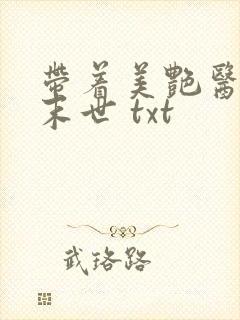 帶着美艷醫
末世 txt
武珞路